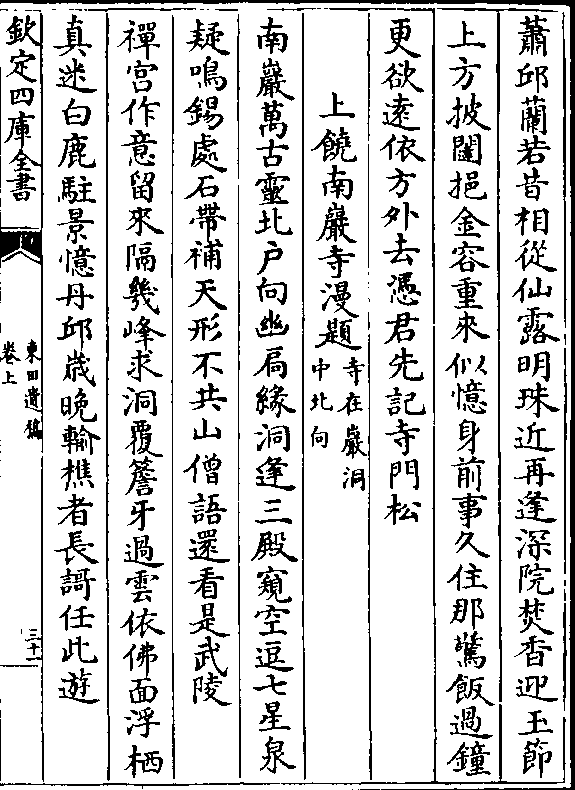 蕭邱蘭若昔相從仙露明珠近再逢深院焚香迎玉節
上方披闥挹金容重來似憶身前事久住那驚飯過鐘
更欲遠依方外去憑君先記寺門松
上饒南巖寺漫題寺在巖洞中北向
南巖萬古靈北户向幽扃緣洞逢三殿窺空逗七星泉
疑鳴錫處石帶補天形不共山僧語還看是武陵
禪宫作意留來隔幾峰求洞覆簷牙過雲依佛面浮栖
真迷白鹿駐景憶丹邱歲晚輸樵者長謌任此遊
欽定四庫全書
東田遺稿
卷上
三十一